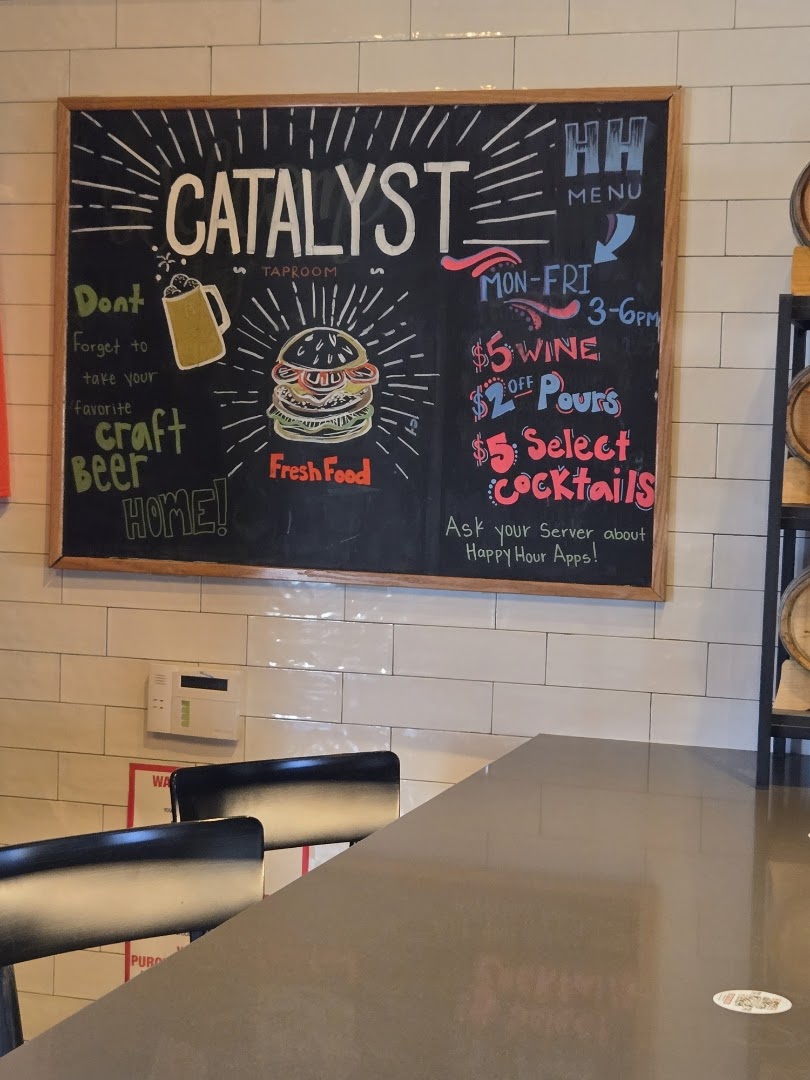 CATALYST
TAPROOM
Dont
Forget to
take your
favorite
craft
BEER
HOME!
Fresh Food
HH
MENU
MON-FRI
3-6PM
$5 WINE
$2 OFF Pours
$5 Select
cocktails
Ask your Server about
Happy Hour Apps!
WA
PURC